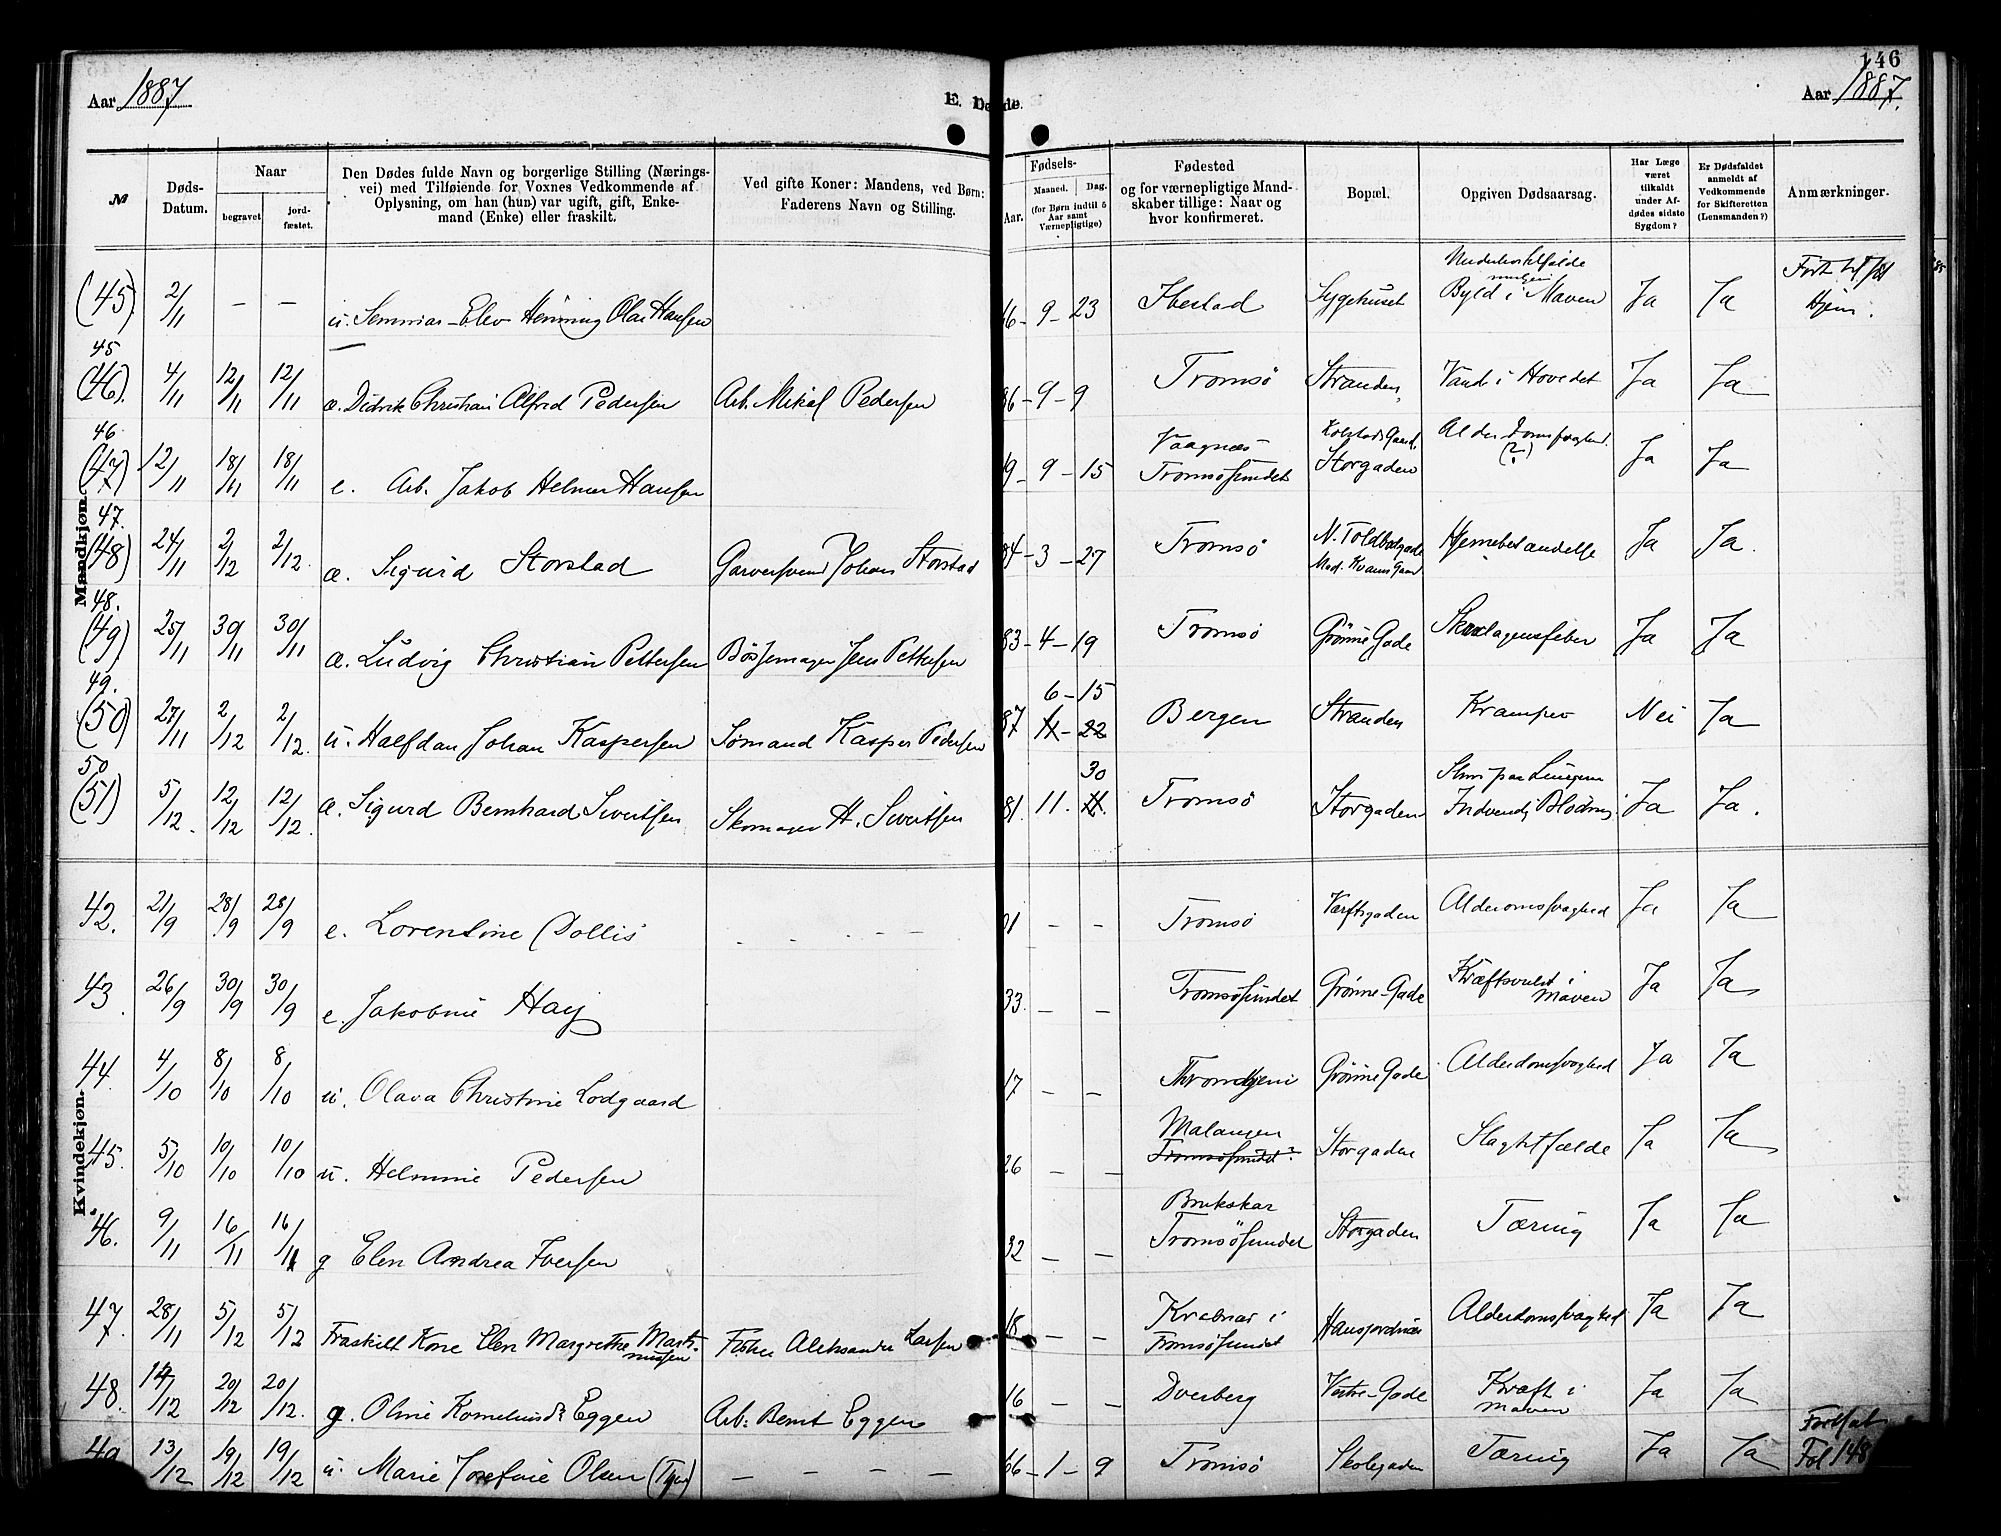 146
Aar 1887
E. Døde.
Aar 1887.
№
Døds-Datum.
Naar
begravet
jordfæstet.
Den Dødes fulde Navn og borgerlige Stilling (Næringsvei) med Tilføiende for Voxnes Vedkommende af Oplysning, om han (hun) var ugift, gift, Enkemand (Enke) eller fraskilt.
Ved gifte Koner: Mandens, ved Børn: Faderens Navn og Stilling.
Fødsels-
Aar.
Maaned.
Dag.
(for Børn indtil 5 Aar samt Værnepligtige)
Fødested
og for værnepligtige Mandskaber tillige: Naar og hvor konfirmeret.
Bopæl.
Opgiven Dødsaarsag.
Har Læge været tilkaldt under Afdødes sidste Sygdom?
Er Dødsfaldet anmeldt af Vedkommende for Skifteretten (Lensmanden?)
Anmærkninger.
Mandkjøn.
(45) 2/11 – – u. Seminar-Elev Henning Olai Hansen 66 – 9 – 23 Ibestad Sygehuset Byld i Maven Ja Ja Hjem.
45
(46). 4/11 12/11 12/11 æ. Didrik Christian Alfred Pedersen Arb. Mikal Pedersen 86 – 9 – 9 Tromsø Stranden Vand i Hovedet Ja Ja
46
(47) 12/11 18/11 18/11 e. Arb. Jakob Helmer Hansen 19 – 9 – 15 Vaagnæs Tromsøsundet Storgaden (?) Ja Ja
47.
(48) 24/11 2/12 2/12. æ. Sigurd Storstad Garversvend Johan Storstad 84 – 3 – 27 Tromsø N. Toldbodgade Hjernebetændelse Ja Ja.
48.
(49) 25/11 30/11 30/11 æ. Ludvig Christian Pettersen Bøssemager Jens Pettersen 83 – 4 – 19 Tromsø Grønne Gade Skarlagensfeber Ja Ja
49.
(50) 27/11 2/12 2/12. u. Halfdan Johan Kaspersen Sømand Kasper Pedersen 87 6 – 15 11 – 22 Bergen Stranden Kramper Nei Ja
50
(51) 5/12. 12/12 12/12. æ. Sigurd Bernhard Sivertsen Skomager H. Sivertsen 81. 11. 30 Tromsø Storgaden Slim paa Lungerne Indvendig Blødning Ja Ja.
Kvindekjøn.
42. 21/9 28/9 28/9 e. Lorentine Dollis – – – 01 – – Tromsø Værftsgaden Alderdomssvaghed Ja Ja
43. 26/9 30/9 30/9 e. Jakobine Hay 33. – – Tromsøsundet Grønne-Gade Kræftsvulst i Maven Ja Ja
44. 4/10 8/10 8/10 u. Olava Christine Lodgaard 17 – – Throndhjem Grønne Gade Alderdomssvaghed Ja Ja
45. 5/10 10/10 10/10 u. Helmine Pedersen 26 – – Malangen Tromsøsundet? Storgaden Slagtilfælde Ja Ja
46. 9/11 16/11 16/11 g Elen Andrea Iversen 32 – – Tromsøsundet Storgaden Tæring Ja Ja
47. 28/11 5/12 5/12 Fraskilt Kone Elen Margrethe Martinussen Fisker Aleksander Larsen 18 – – Tromsøsundet Hansjordnæs Alderdomssvaghed Ja Ja
48. 14/12 20/12 20/12. g. Oline Kornelius Dr Eggen Arb. Bernt Eggen 16 – – Dverberg Vestre-Gade Kræft i Maven Ja Ja
49 13/12 19/12 19/12 u. Marie Josefine Olsen – – – – 66 – 1 – 9 Tromsø Skolegaden Tæring Ja Ja Fortsat Fol 148